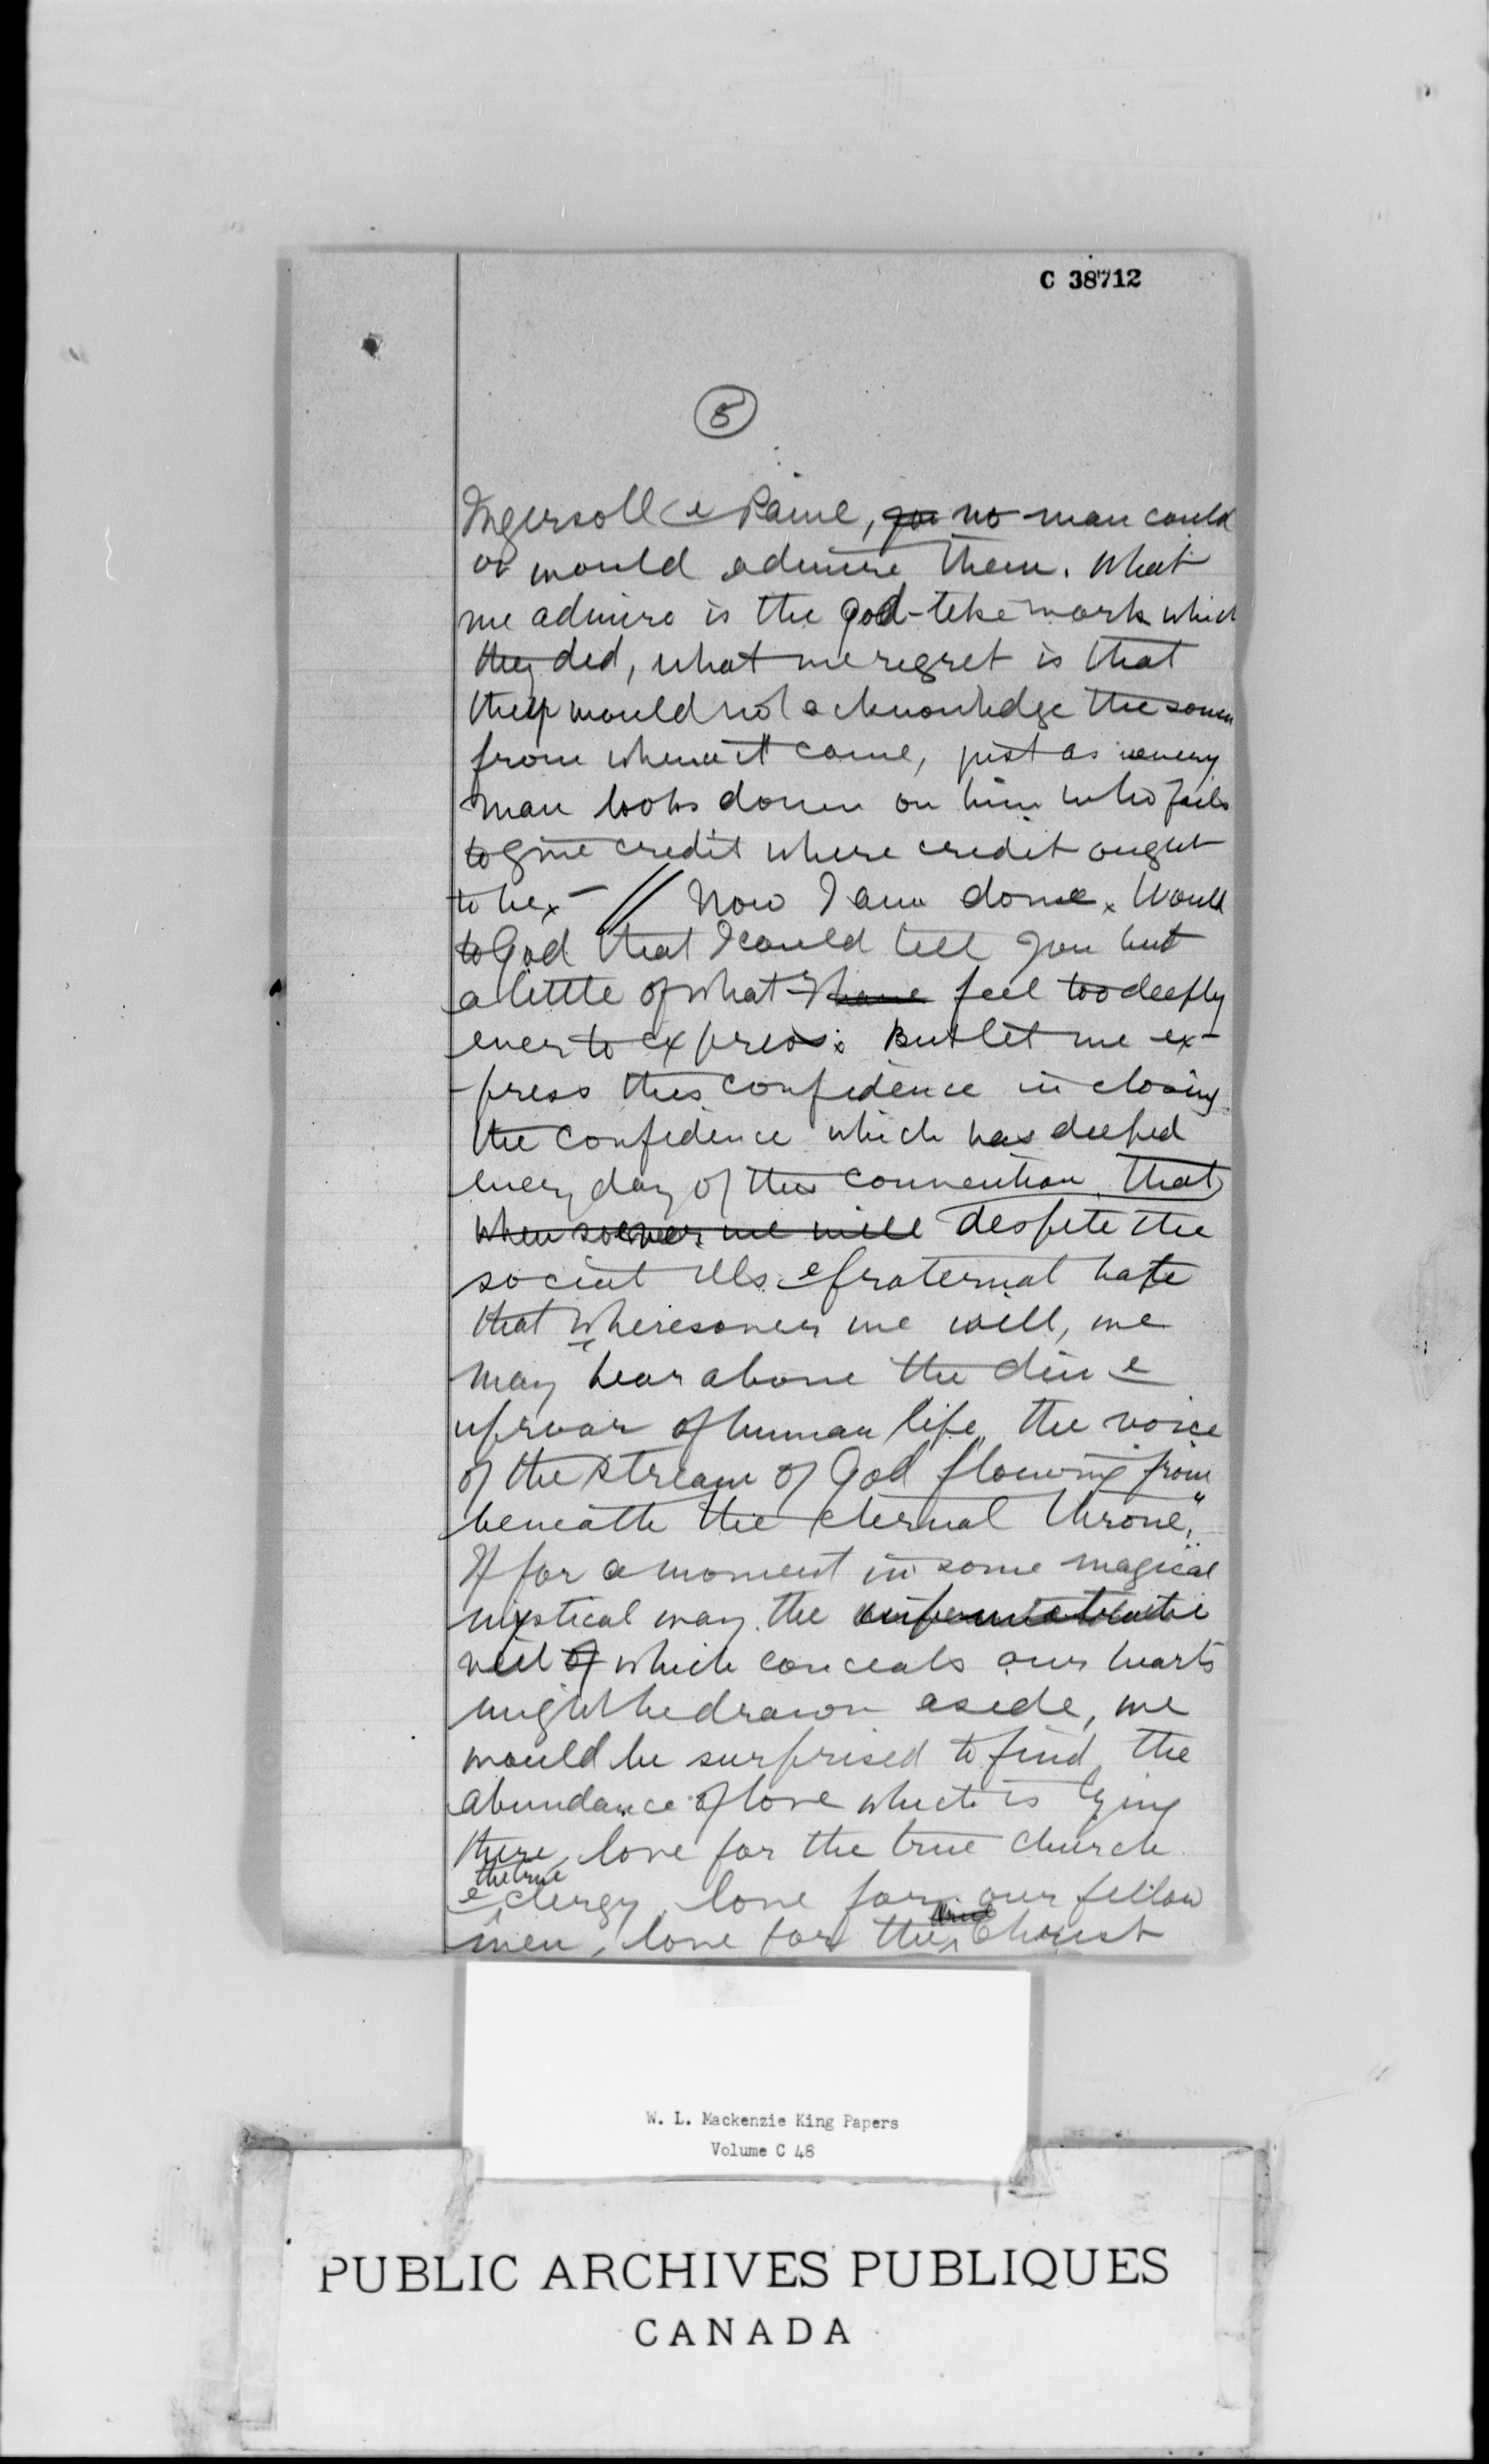 C 38712
5
Ingersoll & Paine, you no man could
or would admire them. What
we admire is the god-like work which
they did, what we regret is that
they would not acknowledge the source
from whence it came, just as every
man looks down on him who fails
to give credit where credit ought
to be. — // Now I am done. Would
to God that I could tell you but
a little of what I have feel too deeply
ever to express. But let me ex-
-press this confidence in closing
the confidence which has deeped
every day of this convention, that
whensoever we will despite the
social ills & fraternal hate
that wheresoever we will, we
may hear above the din &
uproar of human life "the voice
of the stream of God flowing from
beneath the eternal throne."
If for a moment in some magical
mystical way the
veil of which conceals our hearts
might be drawn aside, we
would be surprised to find the
abundance of love which is lying
there, love for the true church
the true
& clergy, love for our fellow
true
men, love for the Christ
W. L. Mackenzie King Papers
Volume C 48
PUBLIC ARCHIVES PUBLIQUES
CANADA